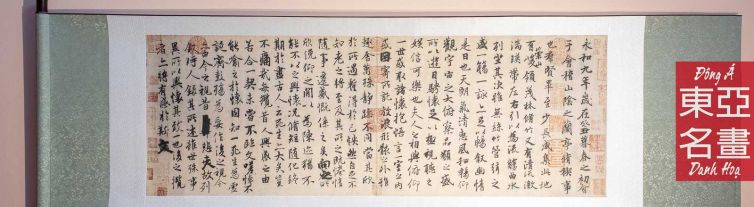 永和九年歲在癸丑暮春之初會
于會稽山陰之蘭亭脩稧事
也群賢畢至少長咸集此地
有崇山峻領茂林脩竹又有清流激
湍暎帶左右引以為流觴曲水
列坐其次雖無絲竹管弦之
盛一觴一詠亦足以暢敘幽情
是日也天朗氣清惠風和暢仰
觀宇宙之大俯察品類之盛
所以遊目騁懷足以極視聽之
娛信可樂也夫人之相與俯仰
一世或取諸懷抱悟言一室之內
或因寄所託放浪形骸之外雖
趣舍萬殊靜躁不同當其欣
於所遇蹔得於己怏然自足不
知老之將至及其所之既惓情
隨事遷感慨係之矣向之所
欣俛仰之閒以為陳迹猶不
能不以之興懷況脩短隨化終
期於盡古人云死生亦大矣豈
不痛哉每攬昔人興感之由
若合一契未嘗不臨文嗟悼不
能喻之於懷固知一死生為虛
誕齊彭殤為妄作後之視今
亦由今之視昔悲夫故列
敘時人錄其所述雖世殊事
異所以興懷其致一也後之攬
者亦將有感於斯文
Đông Á
東亞
名畫
Danh Hoạ